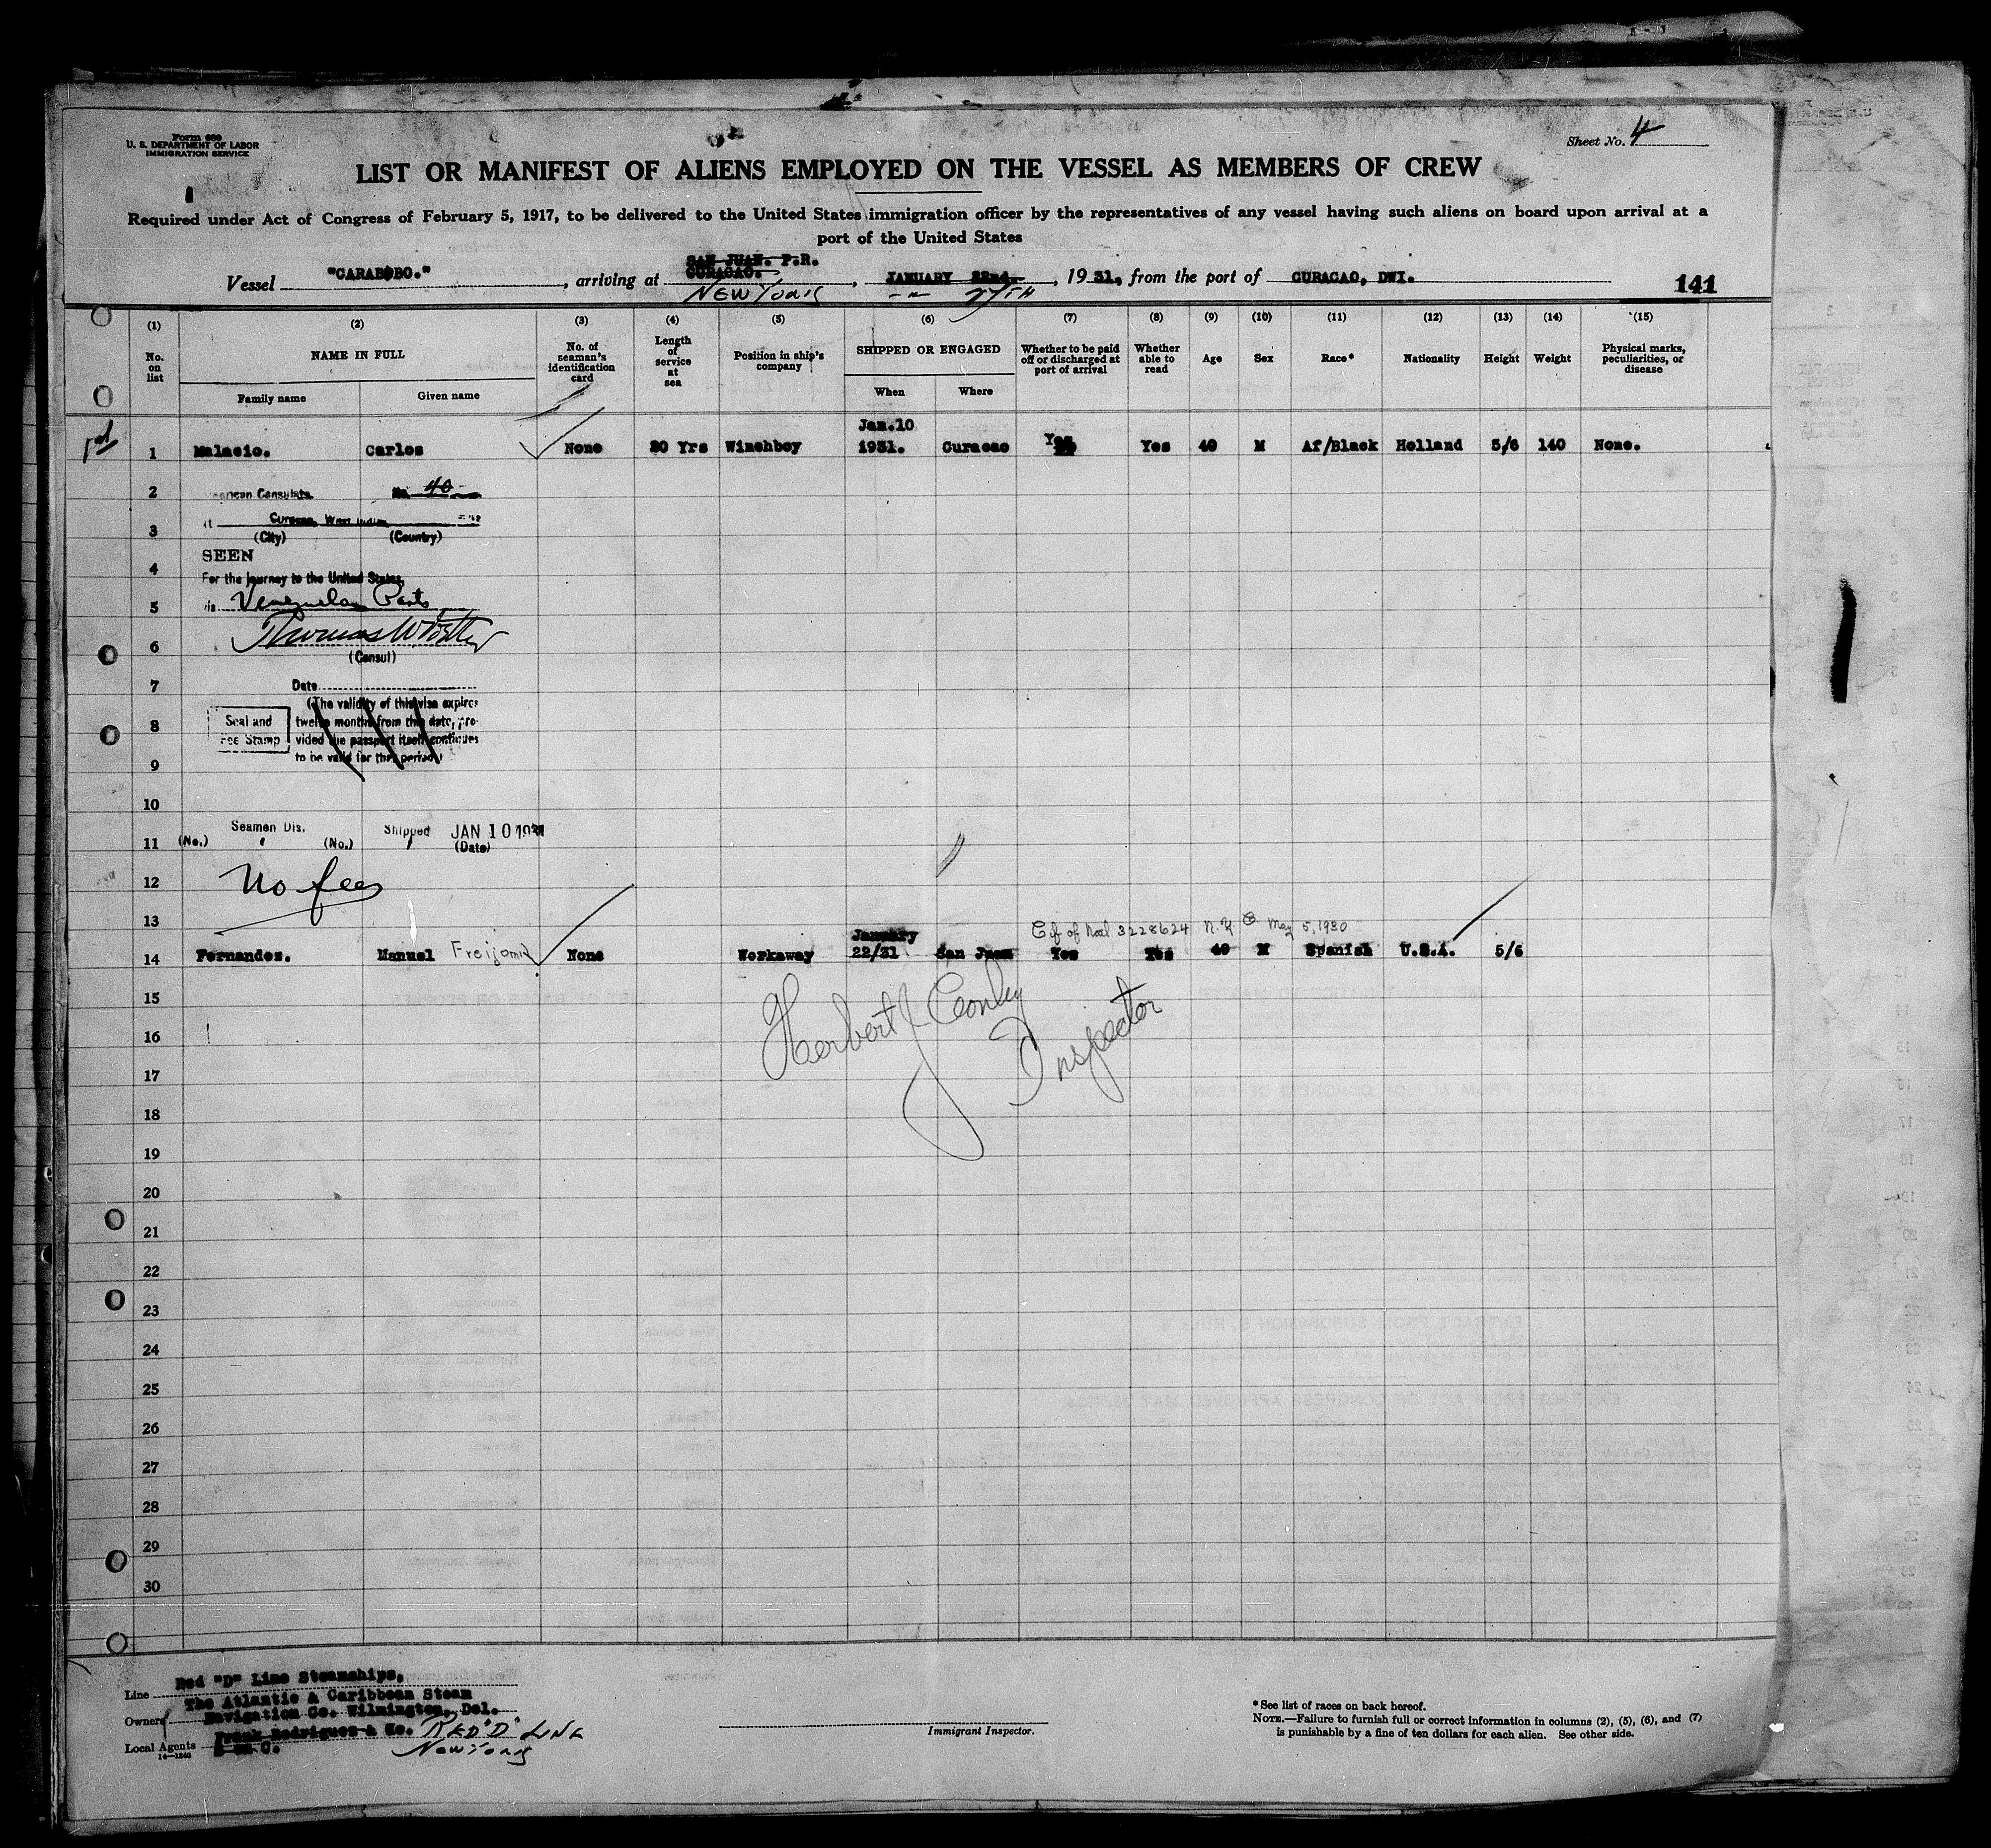 Form 680
U. S. DEPARTMENT OF LABOR
IMMIGRATION SERVICE
Sheet No. 4
LIST OR MANIFEST OF ALIENS EMPLOYED ON THE VESSEL AS MEMBERS OF CREW
Required under Act of Congress of February 5, 1917, to be delivered to the United States immigration officer by the representatives of any vessel having such aliens on board upon arrival at a
port of the United States
SAN JUAN. P.R.
Vessel "CARABOBO.", arriving at CURACAO., JANUARY 22nd., 1931, from the port of CURACAO, DWI.
NEW YORK 27TH
141
(1) (2) (3) (4) (5) (6) (7) (8) (9) (10) (11) (12) (13) (14) (15)
No. on list
NAME IN FULL
Family name
Given name
No. of seaman's identification card
Length of service at sea
Position in ship's company
SHIPPED OR ENGAGED
When
Where
Whether to be paid off or discharged at port of arrival
Whether able to read
Age
Sex
Race*
Nationality
Height
Weight
Physical marks, peculiarities, or disease
Jan.10
1 Malacic. Carlos None 20 Yrs Winchboy 1931. Curacao Yes Yes 40 M Af/Black Holland 5/6 140 None.
2 American Consulate No. 40
3 at Curacao, West Indies
(City) (Country)
SEEN
4 For the journey to the United States,
5 via Venezuelan Ports
6
(Consul)
7 Date
(The validity of this visa expires
8 Seal and Fee Stamp twelve months from this date, pro-
vided the passport itself continues
9 to be valid for that period)
10
Seamen Dis. Shipped JAN 10 1931
11 (No.) (No.) (Date)
12 No fees
13 Ctf of Natl 3228624 N.Y. May 5, 1930
January
14 Fernandez. Manuel None Workaway 22/31 San Juan Yes Yes 40 M Spanish U.S.A. 5/6
15 Herbert J Conley
16 Inspector
17
18
19
20
21
22
23
24
25
26
27
28
29
30
Line Red "D" Line Steamships,
Owners The Atlantic & Caribbean Steam
Navigation Co. Wilmington, Del.
Local Agents RED "D" LINE
New York
14—1240
Immigrant Inspector.
*See list of races on back hereof.
NOTE.—Failure to furnish full or correct information in columns (2), (5), (6), and (7)
is punishable by a fine of ten dollars for each alien. See other side.